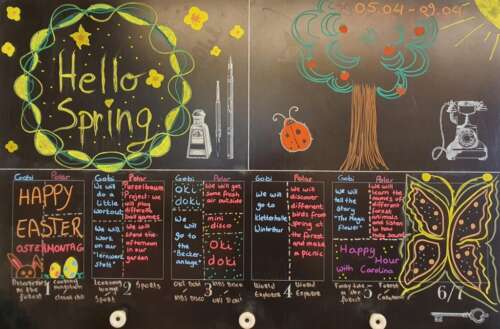 05.04 - 09.04
Hello
Spring
Gabi Petar
HAPPY
EASTER
OSTERMONTAG
1
Gabi
We will
do a
Little
workout
We will
Work
on our
Petar
Purzelbaum
Project: we
will play
different
ball games
We will
Stand the
afternoon
in our
garden
2 Sports
Gabi
Oki
doki
We
will
go to
the
"Becker-
anlage"
Petar
We will get
some fresh
air outside
mini
disco
Oki
doki
3
Gabi
We will
go to
Kletterhalle
Winterthur
Petar
We will
discover
different
birds from
spring at
the forest
and make
a picnic
4
World
Explorer
World
Explorer
Gabi
We will
tell the
story
"The Magic
Flower"
Petar
We will
learn the
names of
different
forest
animals
and listen
to how
they sound
Happy
Hour
with Carolina
5
6/7